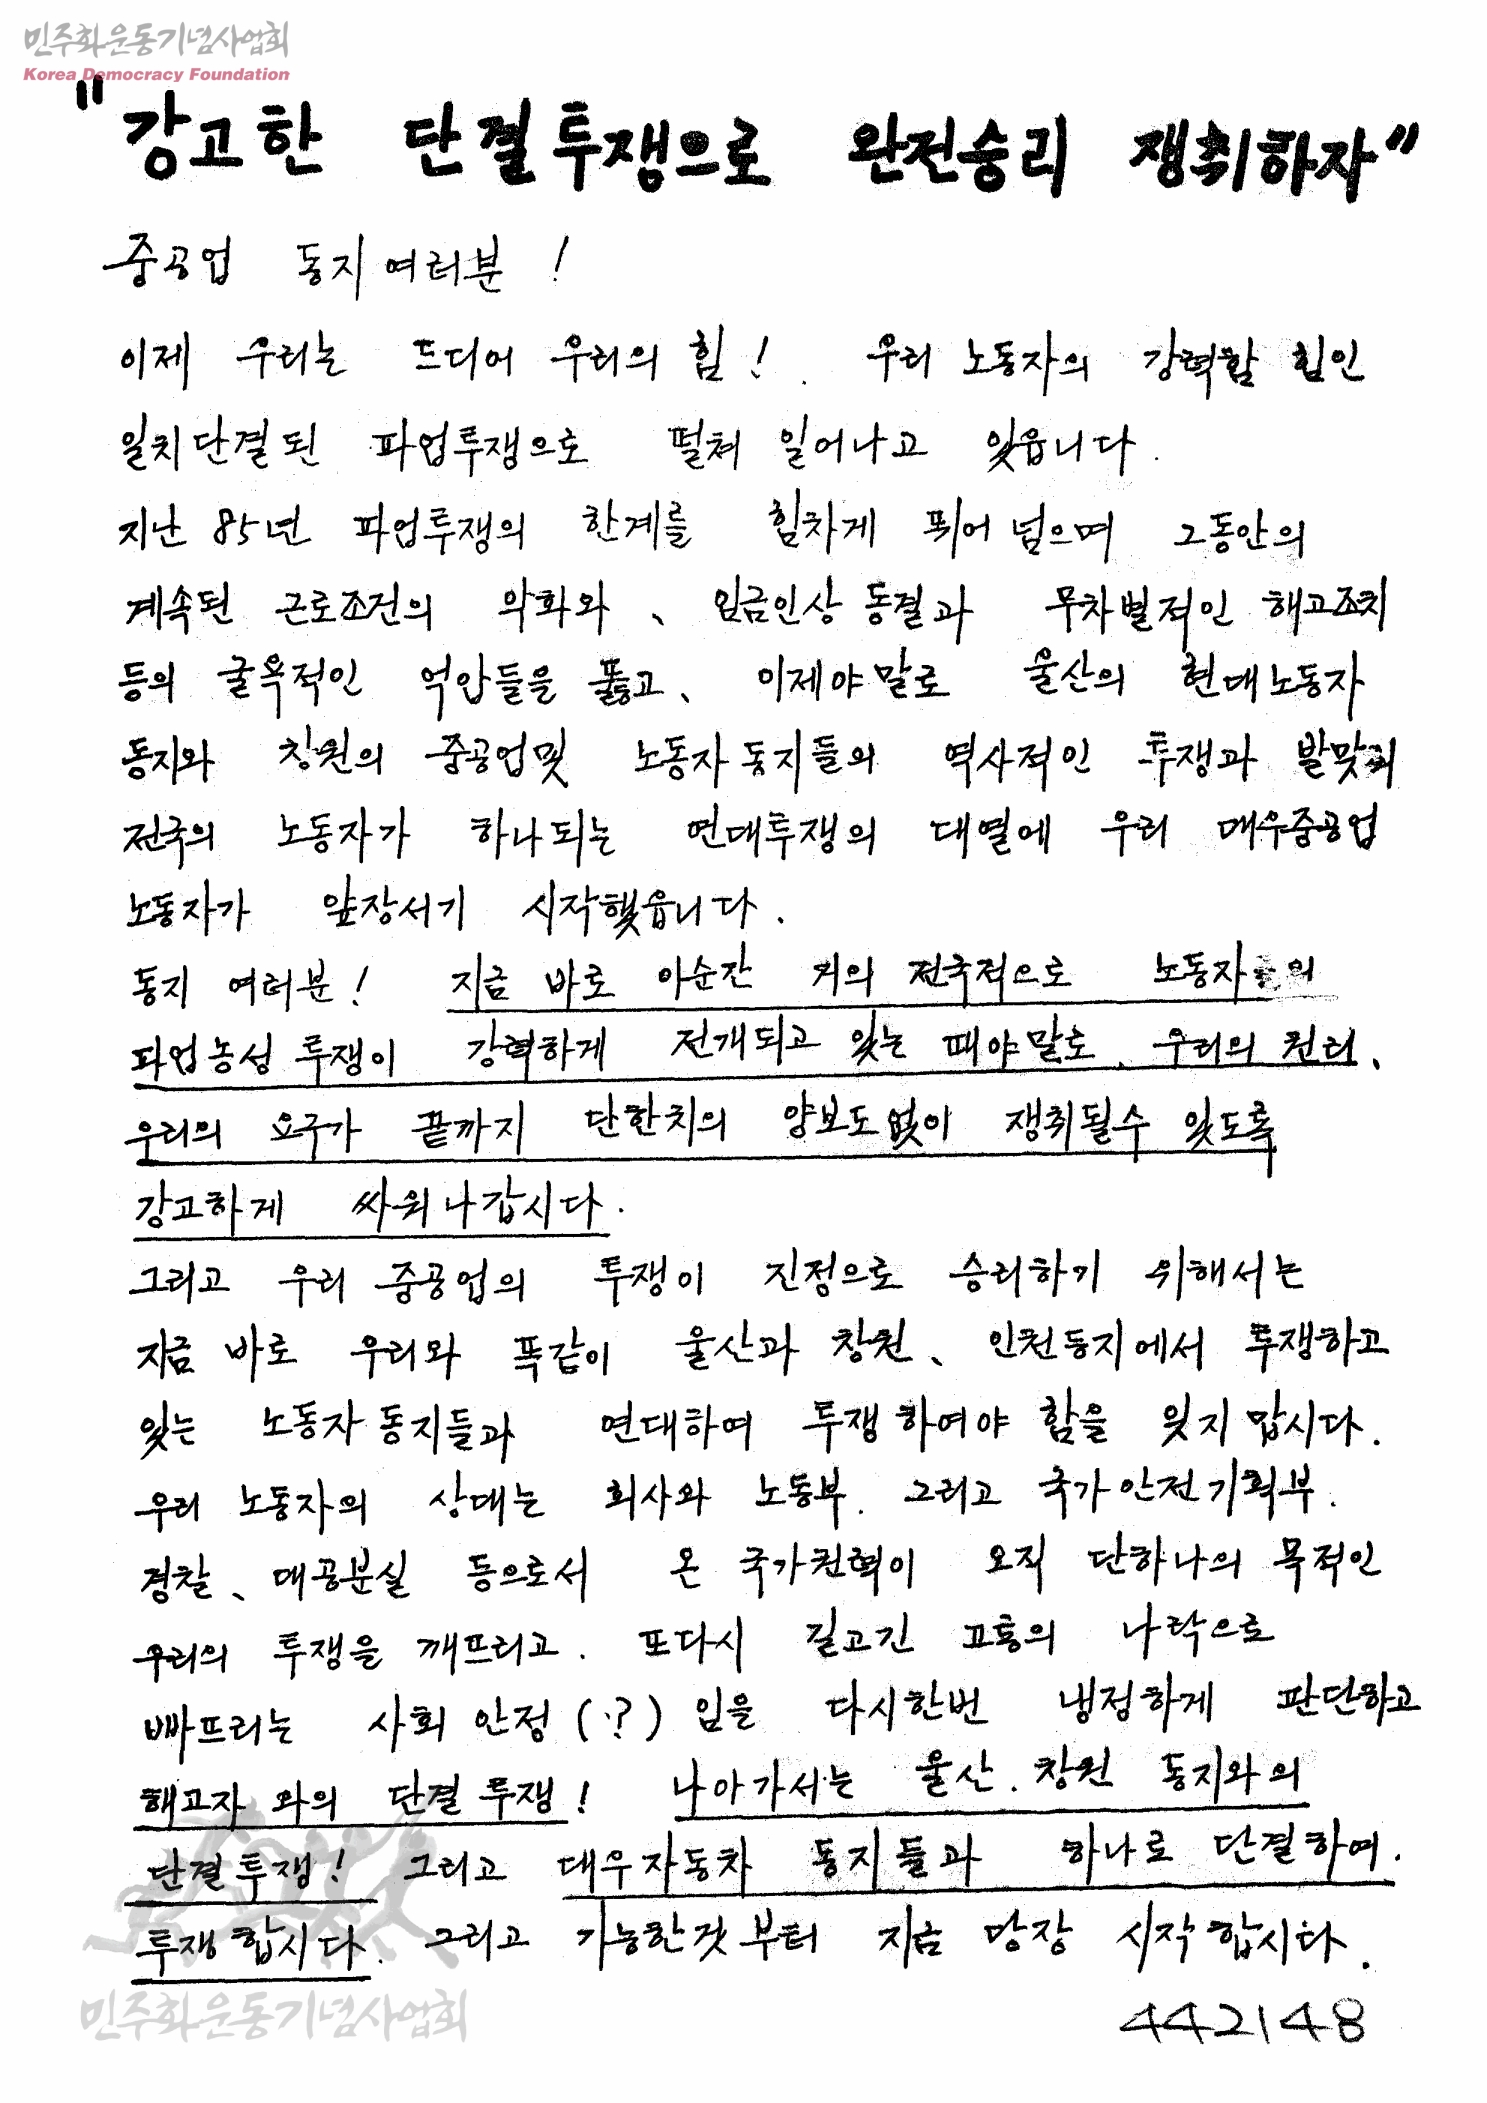 민주화운동기념사업회
Korea Democracy Foundation
"강고한 단결투쟁으로 완전승리 쟁취하자"
중공업 동지여러분!
이제 우리는 드디어 우리의 힘! 우리 노동자의 강력할 힘인
일치단결된 파업투쟁으로 떨쳐 일어나고 있읍니다.
지난 85년 파업투쟁의 한계를 힘차게 뛰어 넘으며 그동안의
계속된 근로조건의 악화와、 임금인상 동결과 무차별적인 해고조치
등의 굴욕적인 억압들을 뚫고、 이제야말로 울산의 현대노동자
동지와 창원의 중공업및 노동자 동지들의 역사적인 투쟁과 발맞춰
전국의 노동자가 하나되는 연대투쟁의 대열에 우리 대우중공업
노동자가 앞장서기 시작했읍니다.
동지 여러분! 지금 바로 이순간 거의 전국적으로 노동자들의
파업농성 투쟁이 강력하게 전개되고 있는 때야말로、 우리의 권리、
우리의 요구가 끝까지 단한치의 양보도없이 쟁취될수 있도록
강고하게 싸워나갑시다.
그리고 우리 중공업의 투쟁이 진정으로 승리하기 위해서는
지금 바로 우리와 똑같이 울산과 창원、 인천등지에서 투쟁하고
있는 노동자 동지들과 연대하여 투쟁하여야 함을 잊지 맙시다.
우리 노동자의 상대는 회사와 노동부. 그리고 국가안전기획부.
경찰、 대공분실 등으로서 온 국가권력이 오직 단하나의 목적인
우리의 투쟁을 깨뜨리고. 또다시 길고긴 고통의 나락으로
빠뜨리는 사회 안정(?) 임을 다시한번 냉정하게 판단하고
해고자 와의 단결 투쟁! 나아가서는 울산. 창원 동지와의
단결투쟁! 그리고 대우자동차 동지들과 하나로 단결하여.
투쟁합시다. 그리고 가능한것 부터 지금 당장 시작합시다.
민주화운동기념사업회
442148